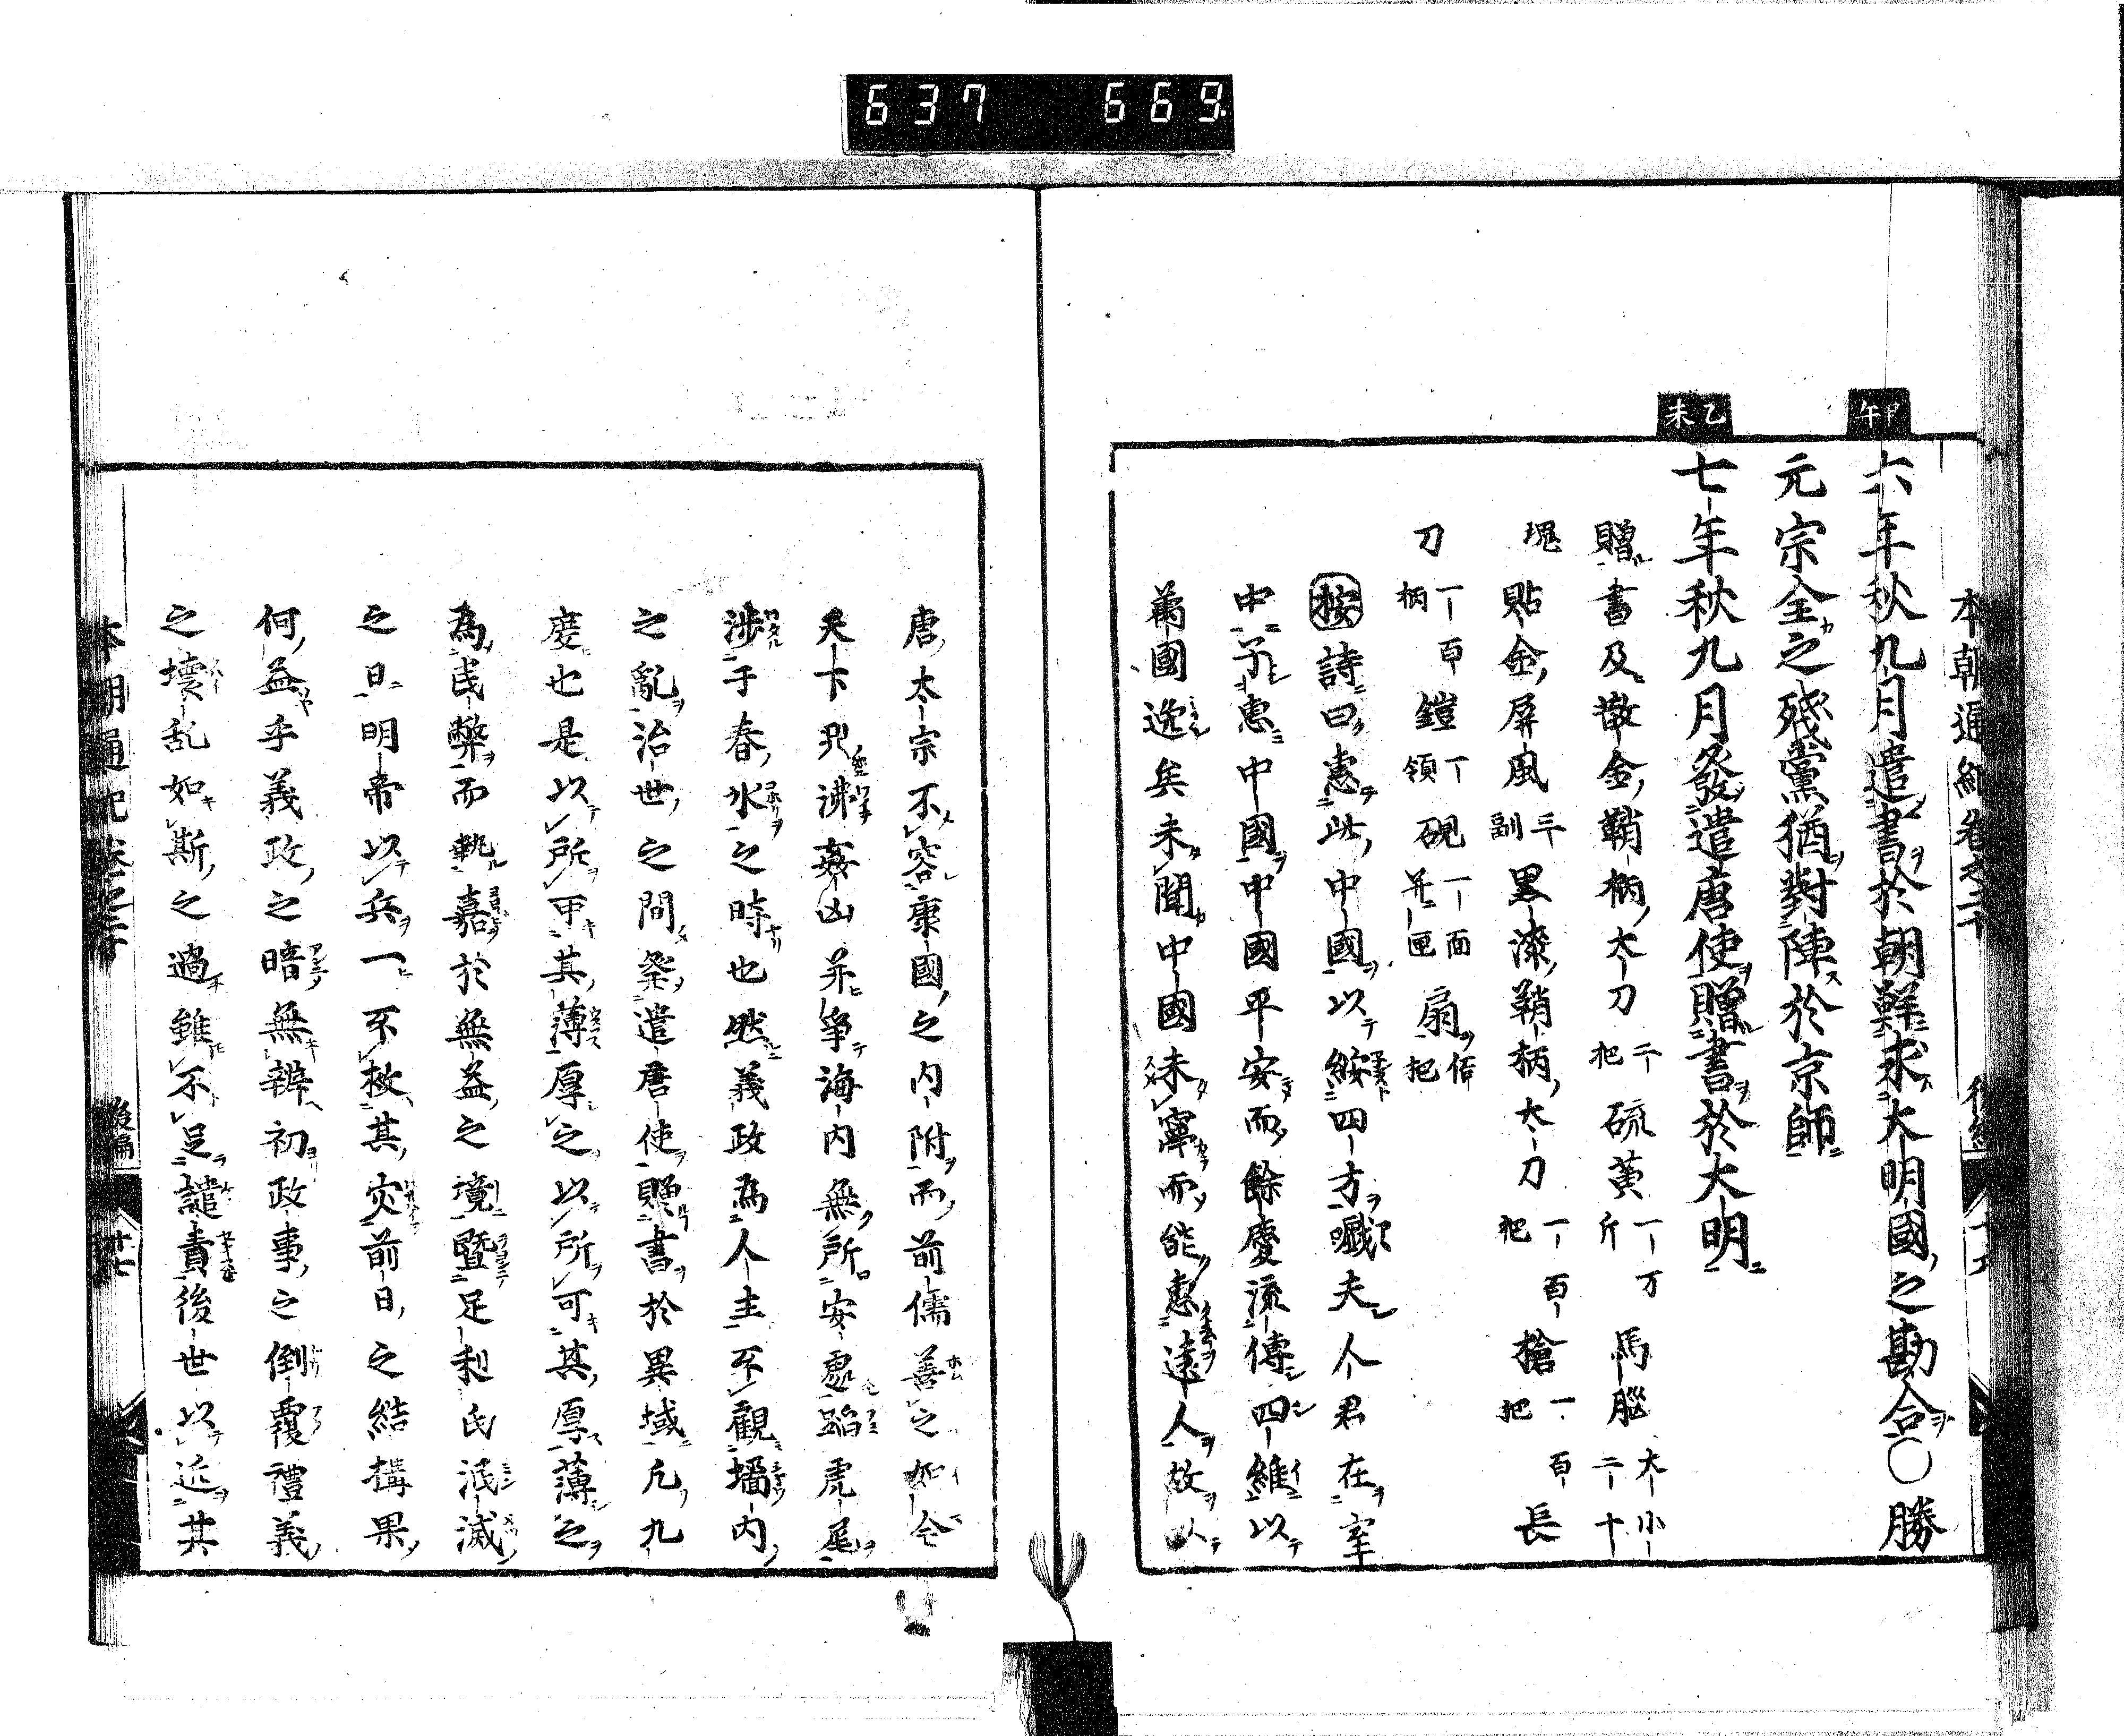 637 669
甲午
六年秋九月遣書於朝鮮求大明國之勘合○勝
元宗全之殘黨猶對陣於京師
乙未
七年秋九月發遣唐使贈書於大明
贈書及散金鞘柄太刀二把硫黄一万斤馬腦大小二十
塊貼金屏風三副黒漆鞘柄太刀一百把槍一百把長
刀一百柄鎧一領硯一面并匣扇一百把
按詩曰惠此中國以綏四方噫夫人君在室
中予惠中國中國平安而餘慶流傳四維以
萬國逸矣未聞中國未寧而能惠遠人故以
唐太宗不容康國之内附而前儒善之如今
天下沸姦凶并爭海内無所安處蹈虎尾
涉于春氷之時也然義政為人主不觀墻内
之亂治世之問發遣唐使贈書於異域凡九
度也是以所甲其薄厚之以所可其厚薄之
為民弊而執嘉於無益之境曁足利氏泯滅
之日明帝以兵一不救其灾前日之結搆果
何益乎義政之暗無辨初政事之倒覆禮義
之壊乱如斯之過雖不足譴責後世以近其
本朝通紀卷之二十 後編 廿七